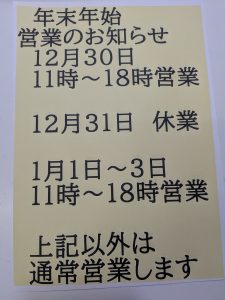 年末年始
営業のお知らせ
12月30日
11時～18時営業
12月31日 休業
1月1日～3日
11時～18時営業
上記以外は
通常営業します